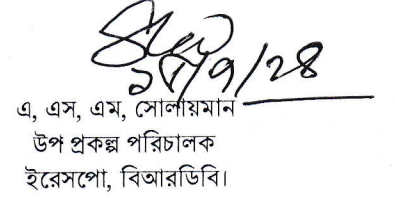 এ, এস, এম, সোলায়মান
উপ প্রকল্প পরিচালক
ইরেসপো, বিআরডিবি।